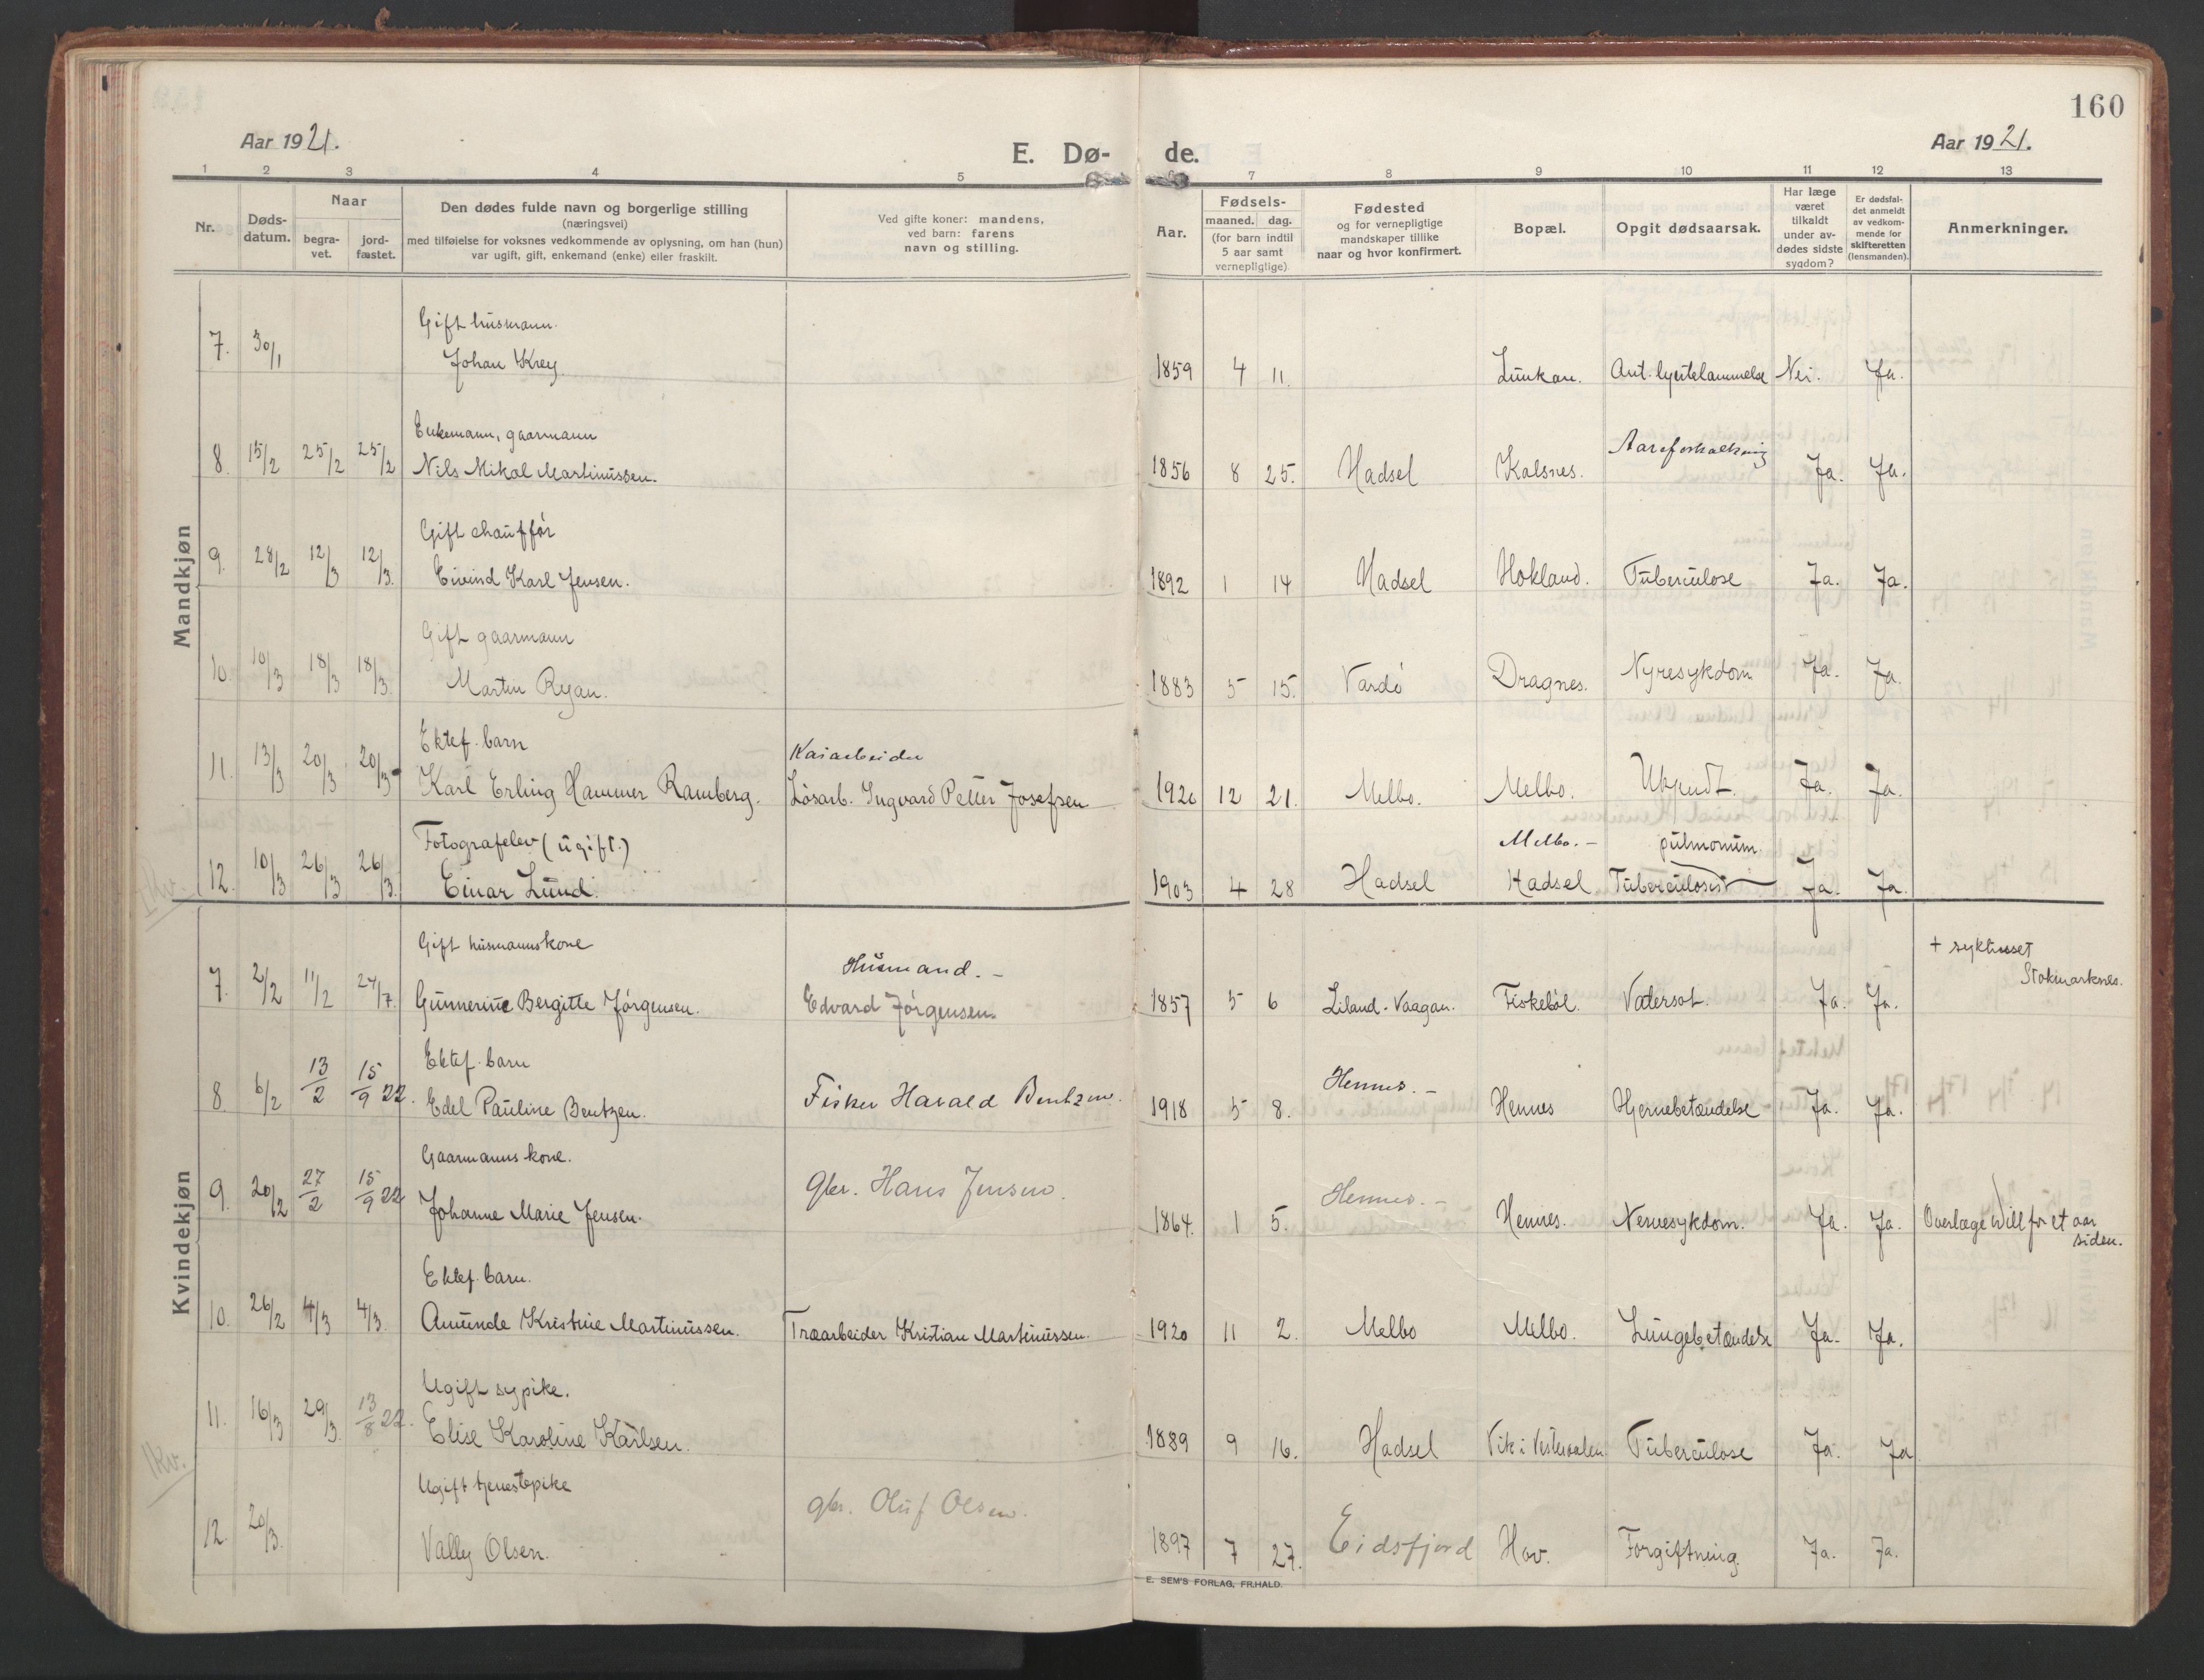 160
Aar 1921.
E. Dø- de.
Aar 1921.
1 2 3 4 5 7 8 9 10 11 12 13
Nr.
Døds-
datum.
Naar
begra-
vet.
jord-
fæstet.
Den dødes fulde navn og borgerlige stilling
(næringsvei)
med tilføielse for voksnes vedkommende av oplysning, om han (hun)
var ugift, gift, enkemand (enke) eller fraskilt.
Ved gifte koner: mandens,
ved barn: farens
navn og stilling.
Aar.
Fødsels-
maaned. dag.
(for barn indtil
5 aar samt
vernepligtige)
Fødested
og for vernepligtige
mandskaper tillike
naar og hvor konfirmert.
Bopæl.
Opgit dødsaarsak.
Har læge
været
tilkaldt
under av-
dødes sidste
sygdom?
Er dødsfal-
det anmeldt
av vedkom-
mende for
skifteretten
(lensmanden).
Anmerkninger.
Mandkjøn
Gift husmann.
7. 30/1 Johan Krey. 1859 4 11. Lunkan. Ant. hjertelammelse Nei. Ja.
Enkemann, gaarmann
8. 15/2 25/2 25/2 Nils Mikal Martinussen. 1856 8 25. Hadsel Kalsnes. Aareforkalkning Ja. Ja.
Gift chauffør
9. 28/2 12/3 12/3. Eivind Karl Jensen. 1892 1 14 Hadsel Hokland. Tuberculose Ja. Ja.
Gift gaarmann
10. 10/3 18/3 18/3. Martin Ryan. 1883 5 15. Vardø Dragnes. Nyresykdom Ja. Ja.
Ektef. barn Kaiarbeider
11. 13/3 20/3 20/3 Karl Erling Hammer Ramberg. Løsarb. Ingvard Petter Josefsen 1920 12 21. Melbo. Melbo. Ukjendt. Ja. Ja.
Fotografelev (ugift.) Melbo. - pulmonum
12. 10/3 26/3 26/3. Einar Lund. 1903 4 28 Hadsel Hadsel Tuberculosis Ja. Ja.
Kvindekjøn
Gift husmannskone Husmand. - + sykhusset
Stokmarknes.
7. 2/2 11/2 24/7. Gunnerine Bergitte Jørgensen. Edvard Jørgensen. 1857 5 6 Liland - Vaagan. Fiskebøl. Vatersot. Ja. Ja.
Ektef. barn Hennes. -
8. 6/2 13/2 15/9 22. Edel Pauline Bentzen. Fisker Harald Bentzen. 1918 5 8. Hennes Hjernebetændelse Ja. Ja.
Gaarmanns kone.
9. 20/2 27/2 15/9 22 Johanne Marie Jensen. Gbr. Hans Jensen. 1864. 1 5. Hennes. - Hennes. Nervesykdom. Ja. Ja. Overlæge Will for et aar
siden.
Ektef. barn.
10. 26/2 4/3 4/3. Amunde Kristine Martinussen. Træarbeider Kristian Martinussen. 1920 11 2. Melbo Melbo. Lungebetændelse Ja. Ja.
Ugift sypike.
11. 16/3 29/3. 13/8 22. Elise Karoline Karlsen. 1889 9 16. Hadsel Vik i Vesteraalen Tuberculose Ja. Ja
1kv.
Ugift tjenestepike
12. 20/3. Vally Olsen. gbr. Oluf Olsen. 1897 7 27. Eidsfjord Hov. Forgiftning. Ja. Ja.
E. SEM'S FORLAG, FR.HALD.